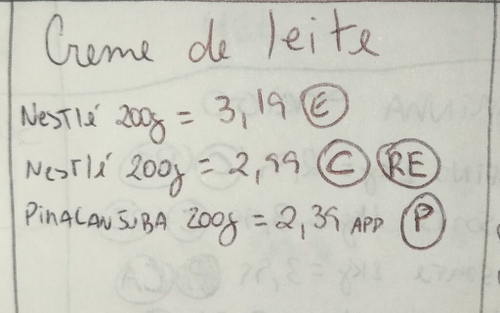 Creme de leite
Nestlé 200g = 3,19 E
Nestlé 200g = 2,99 C RE
PIRACANJUBA 200g = 2,39 APP P